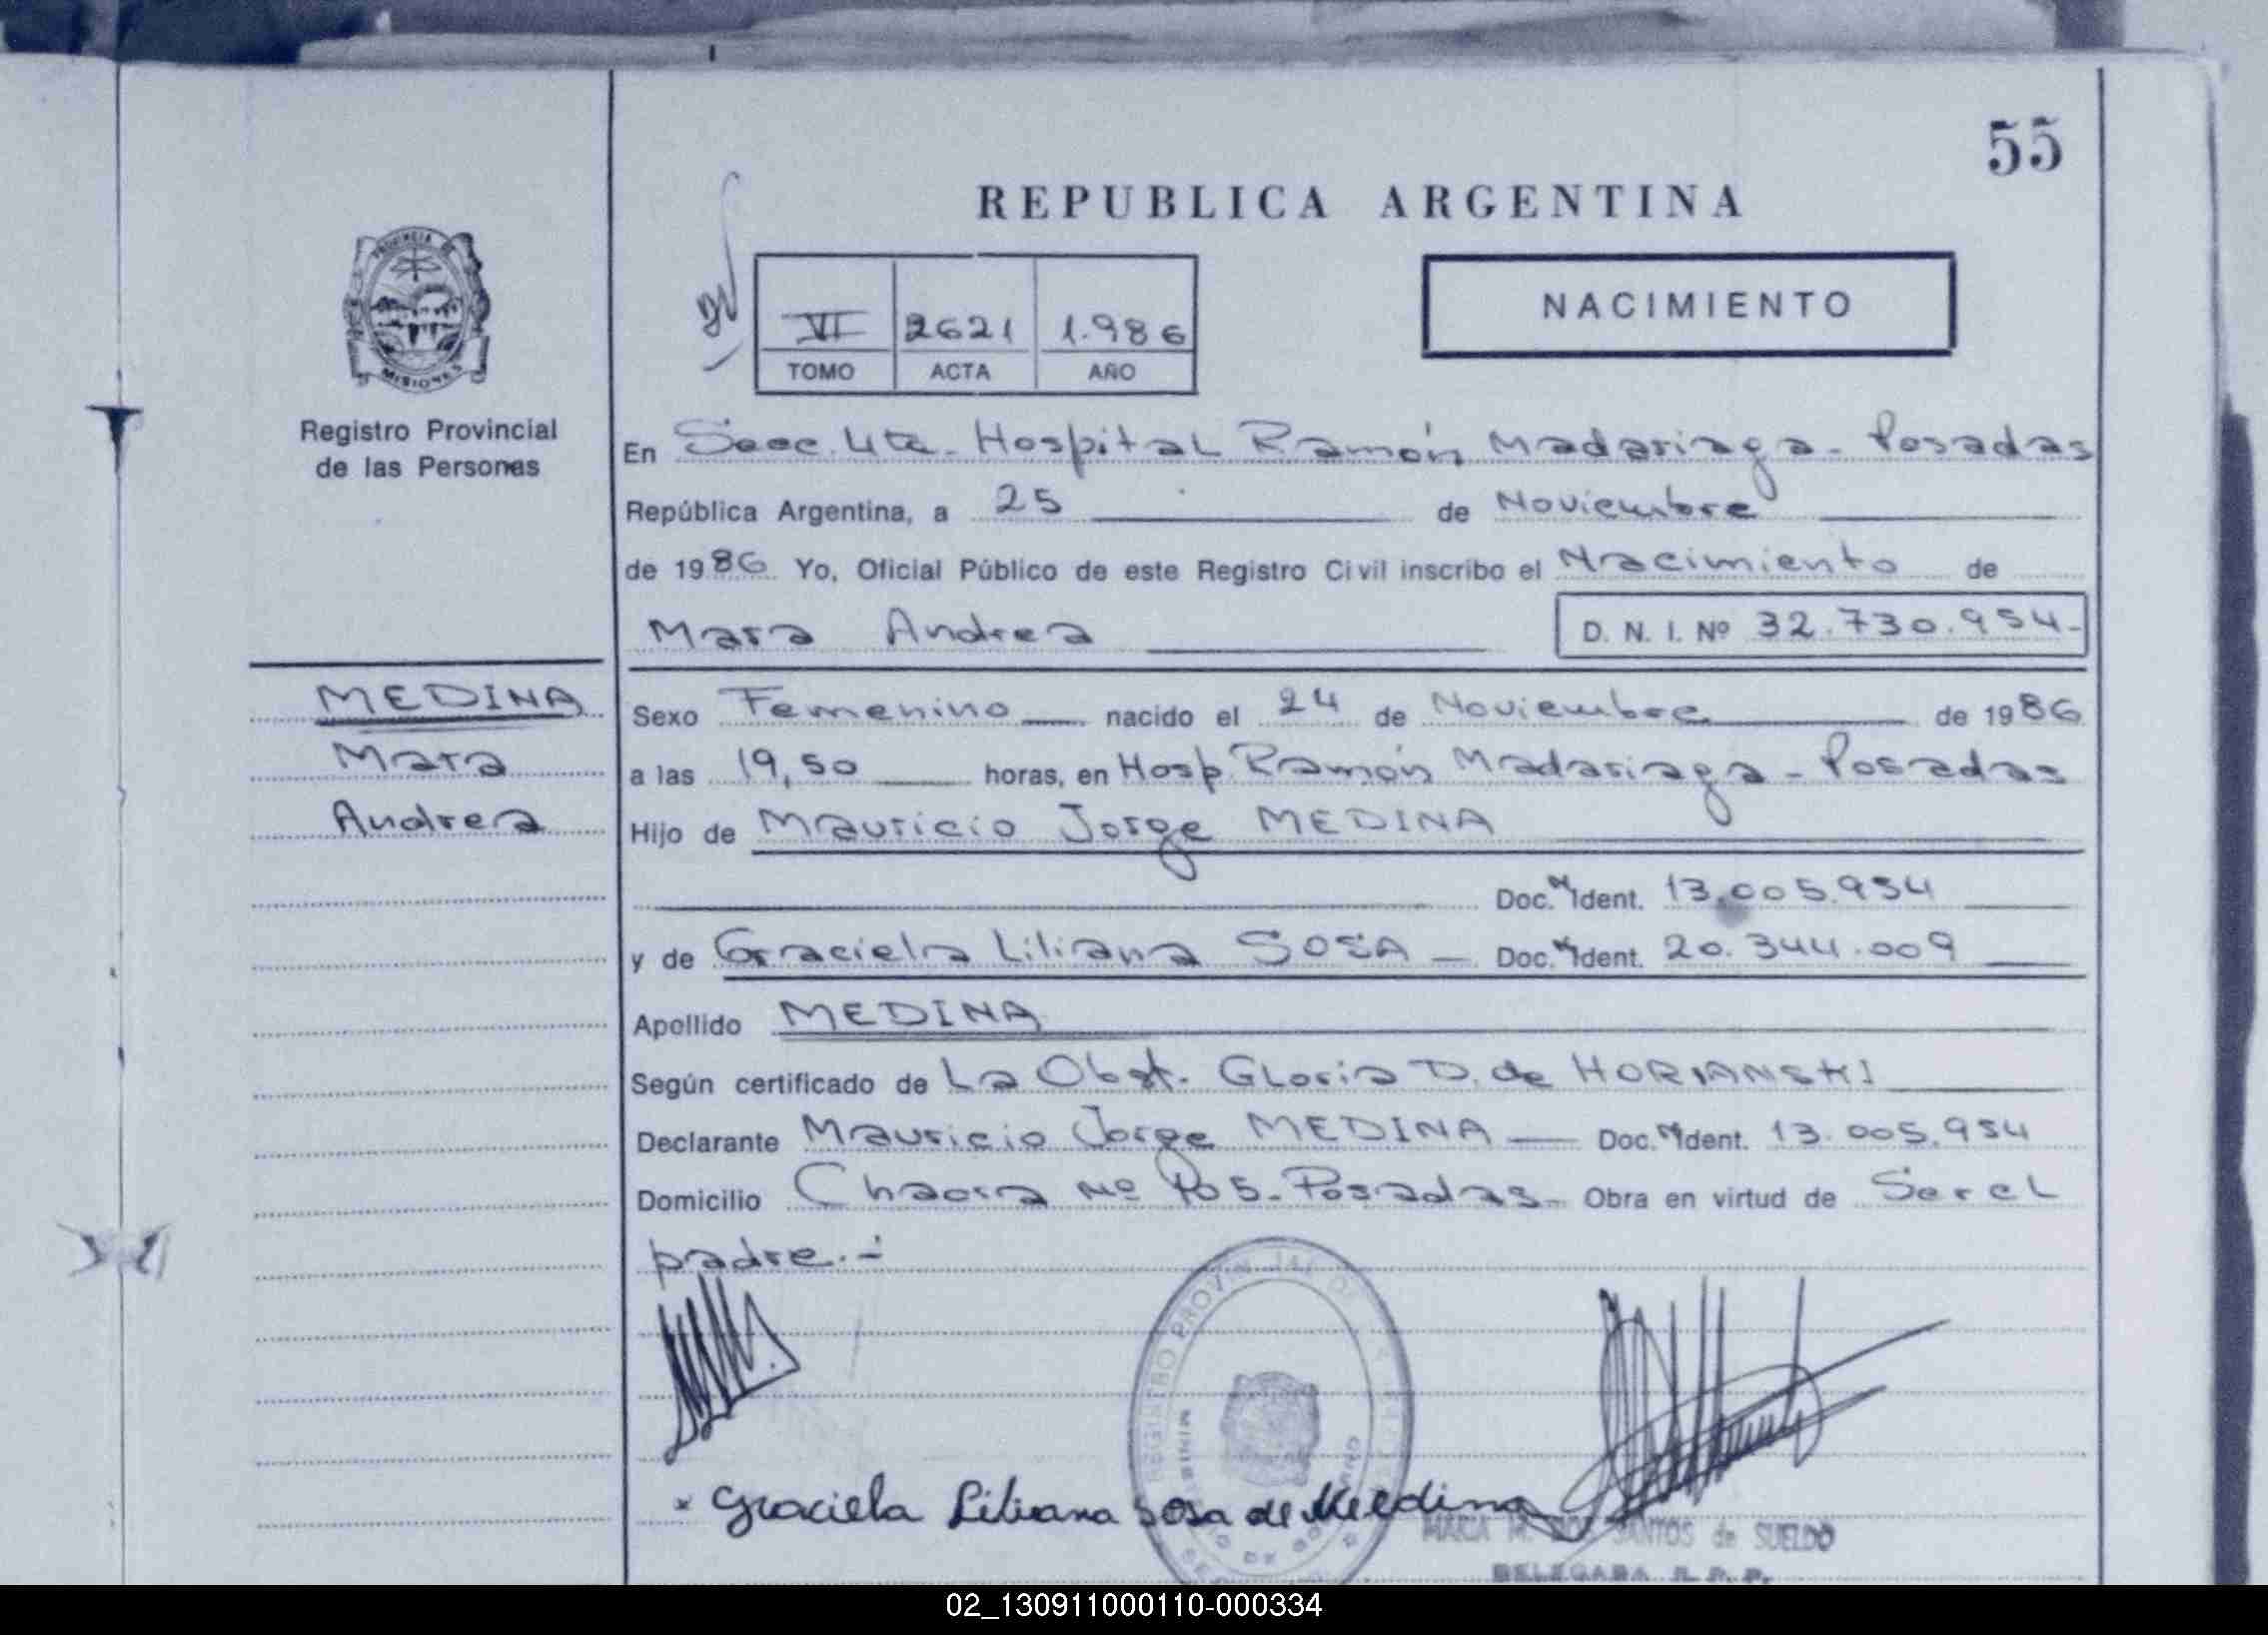 55
REPUBLICA ARGENTINA
PROVINCIA DE
MISIONES
Registro Provincial
de las Personas
VI 2621 1.986
TOMO ACTA AÑO
NACIMIENTO
En Secc. 4ta. Hospital Ramón Madariaga - Posadas
República Argentina, a 25 de Noviembre
de 1986 Yo, Oficial Público de este Registro Civil inscribo el Nacimiento de
Mara Andrea D. N. I. Nº 32.730.954-
MEDINA
Mara
Andrea
Sexo Femenino nacido el 24 de Noviembre de 1986
a las 19,50 horas, en Hosp. Ramón Madariaga - Posadas
Hijo de Mauricio Jorge MEDINA
Doc. Ident. 13.005.954
y de Graciela Liliana SOSA - Doc. Ident. 20.344.009
Apellido MEDINA
Según certificado de La Obst. Gloria D. de HORIANSKI
Declarante Mauricio Jorge MEDINA - Doc. Ident. 13.005.954
Domicilio Chacra Nº 105 - Posadas - Obra en virtud de Ser el
padre.-
REGISTRO PROVINCIAL DE
Graciela Liliana Sosa de Medina
MARIA M. DOS SANTOS de SUELDO
DELEGADA R. P. P.
02_130911000110-000334